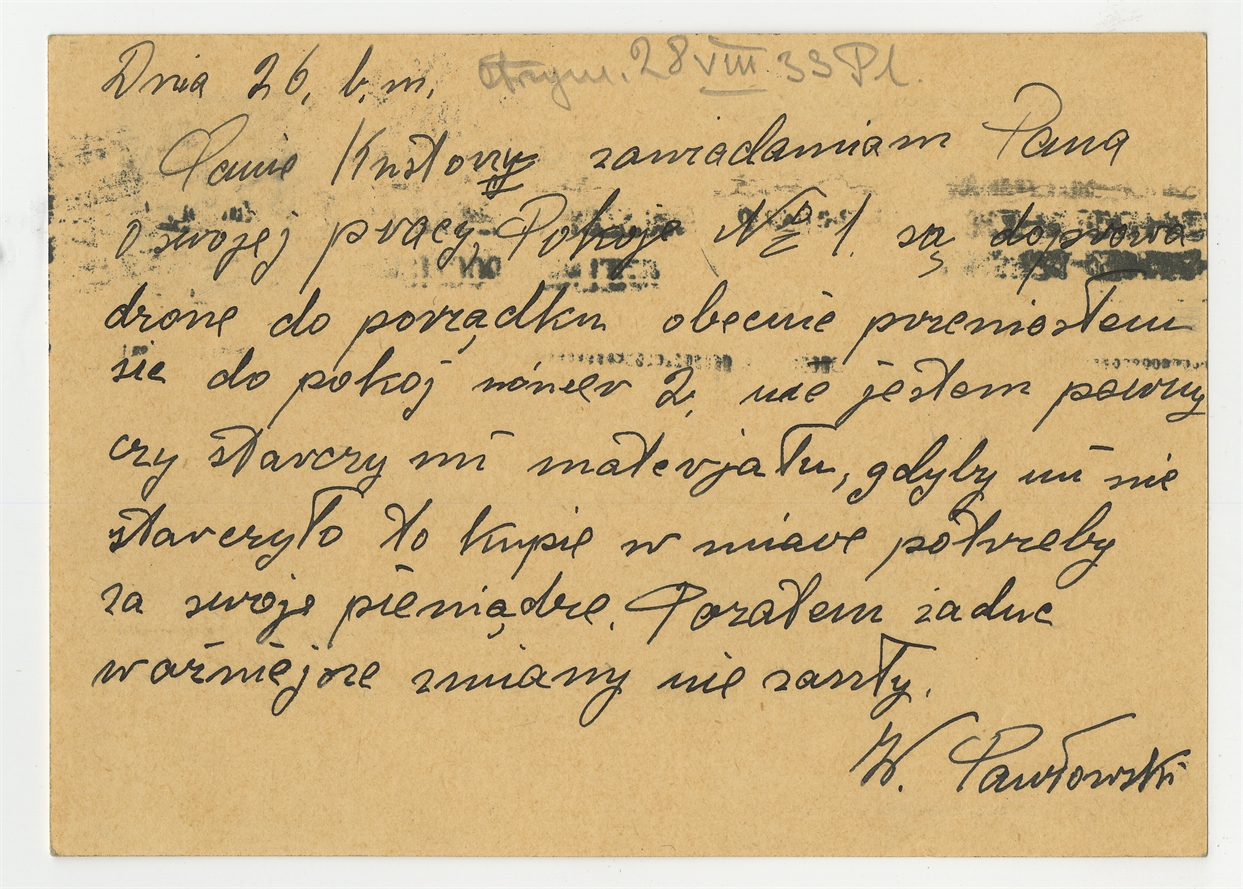 Dnia 26. b.m. Otrzym. 28 VIII 33 Pl.
Panie Kustoszy zawiadamiam Pana
o swojej pracy, Pokoje № 1. są doprowa
dzone do porządku obecnie przeniosłem
sie do pokoj nómer 2, nie jestem pewny
czy starczy mi materjału, gdyby mi nie
starczyło to kupie w miare potrzeby
za swoje pieniądze. Pozatem żadne
ważniejsze zmiany nie zaszły.
W. Pawłowski